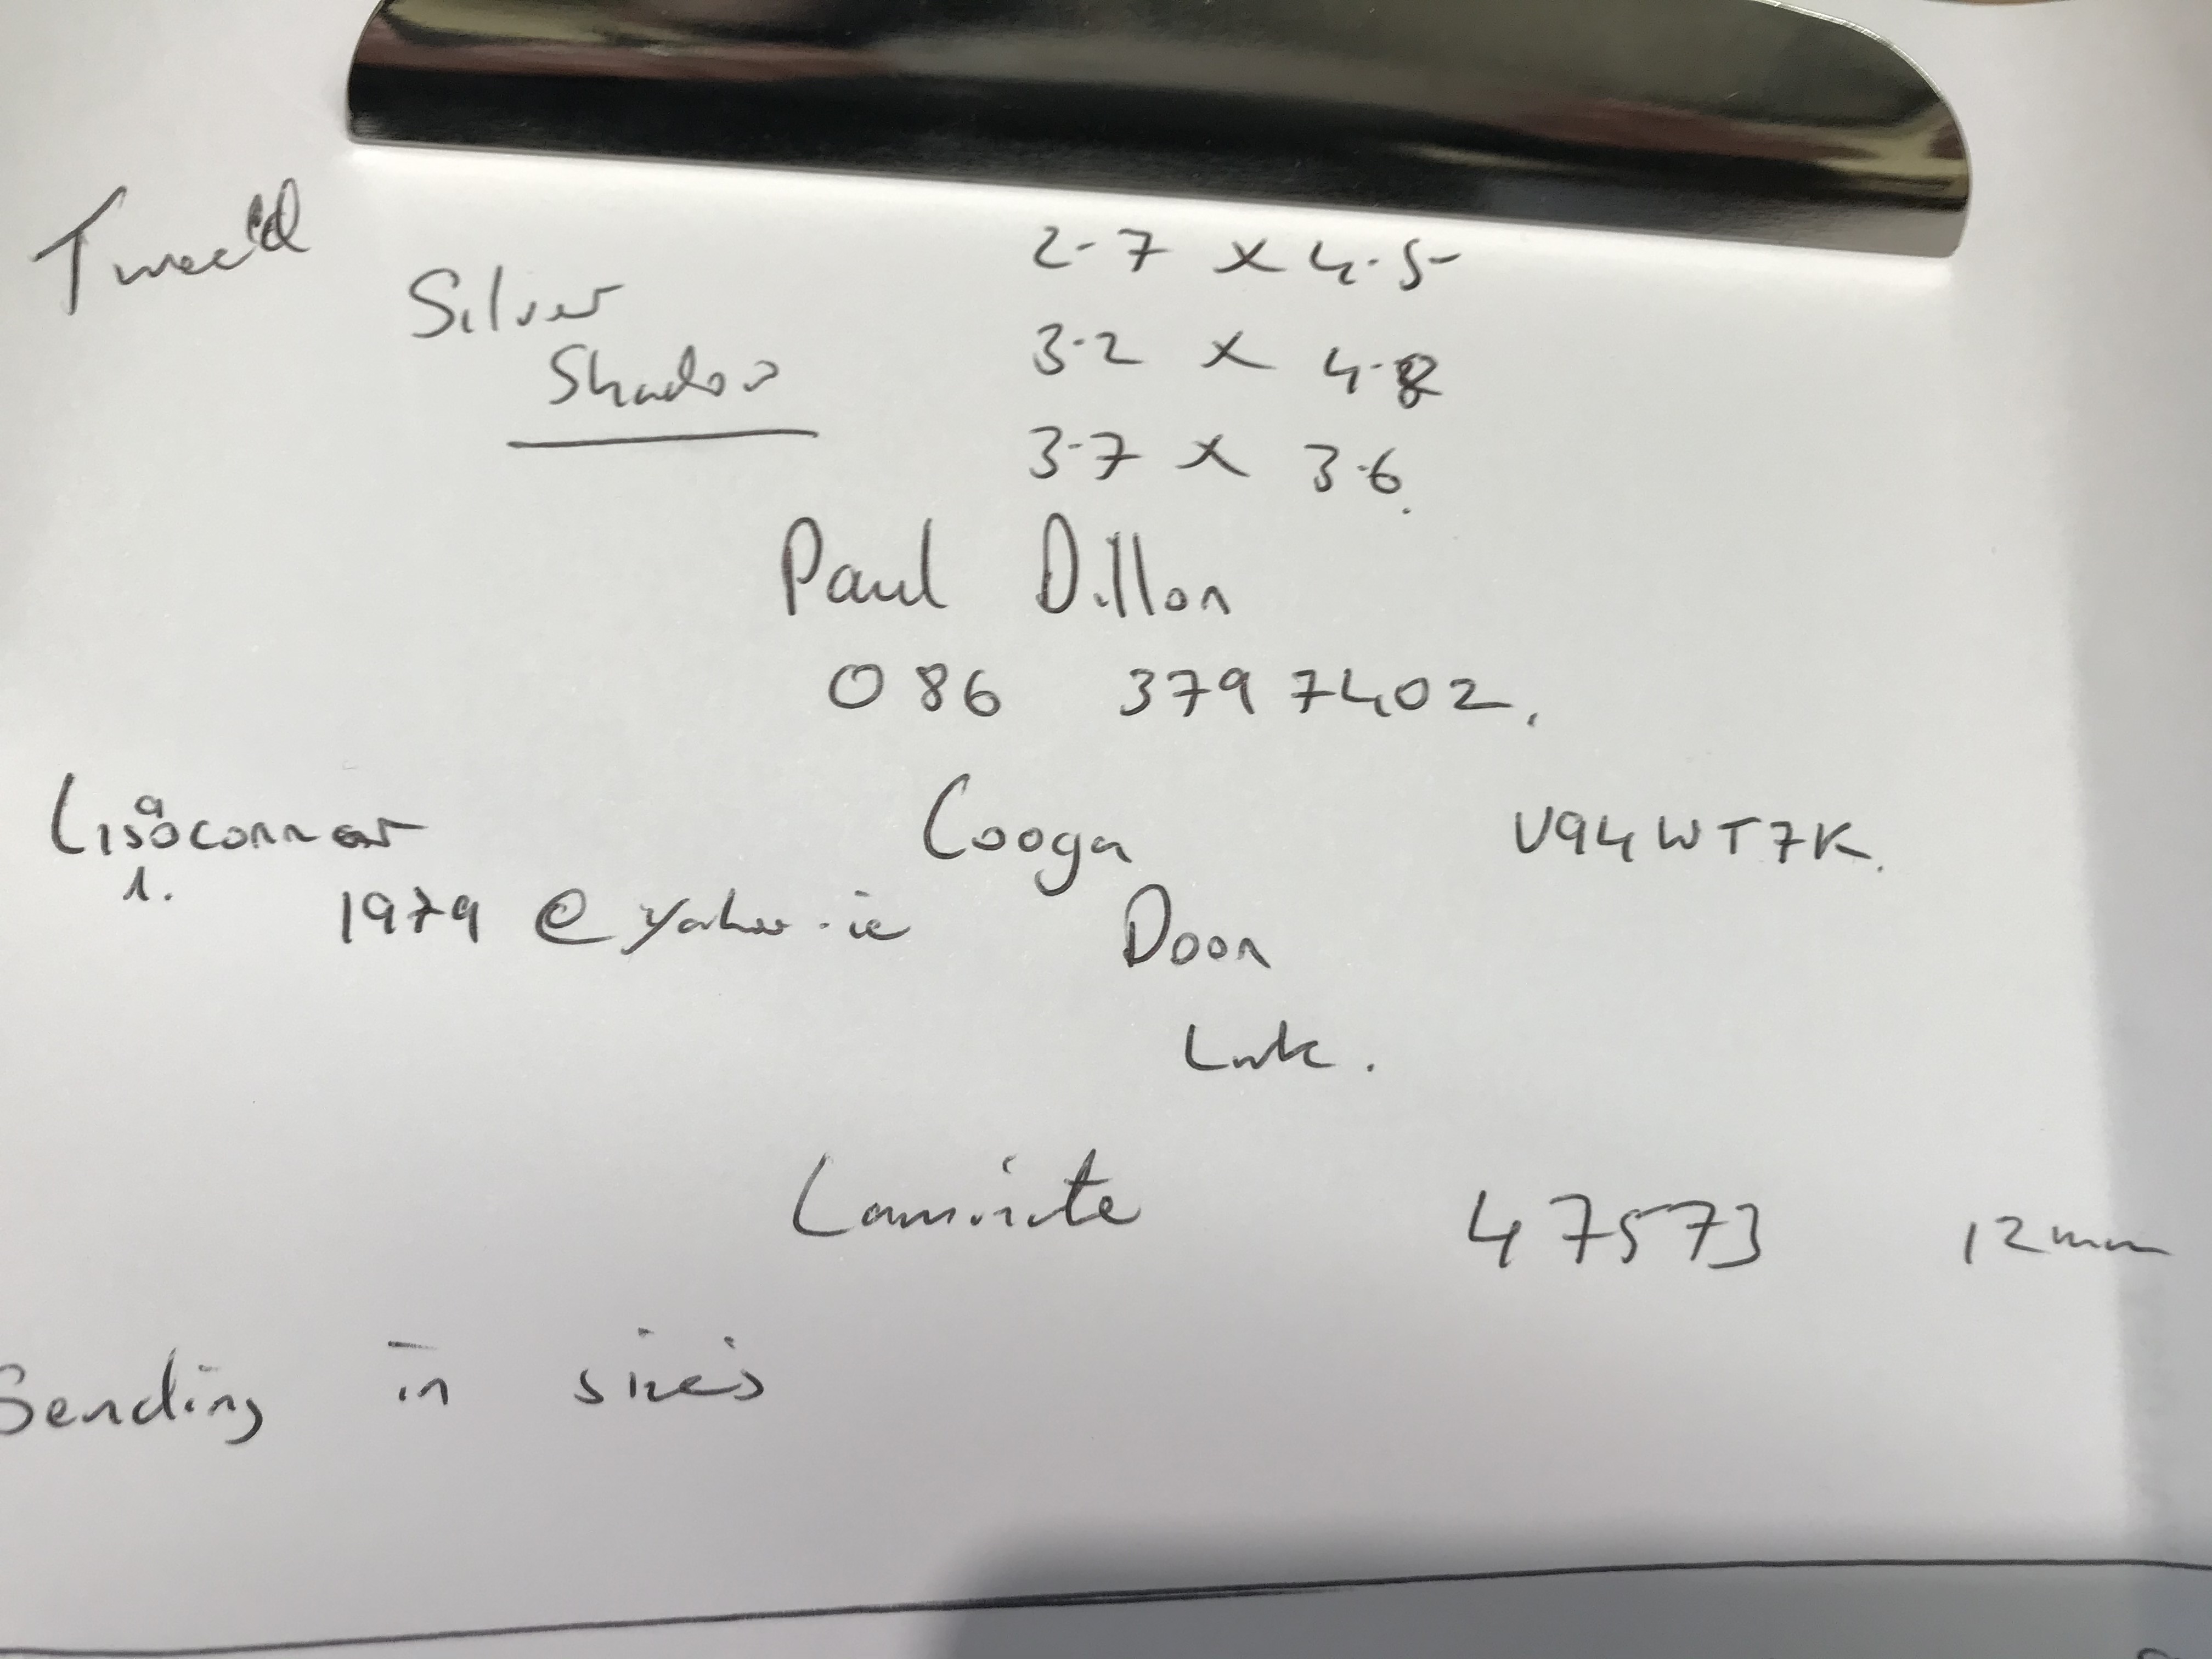 Tweed
Silver
Shadow
2.7 x 4.5
3.2 x 4.8
3.7 x 3.6.
Paul Dillon
086 3797402.
Lisaoconnor
1.
1979 @ yahoo.ie
Cooga
Doon
Lmk.
V94WT7K.
Laminate 47573 12mm
Sending in sizes